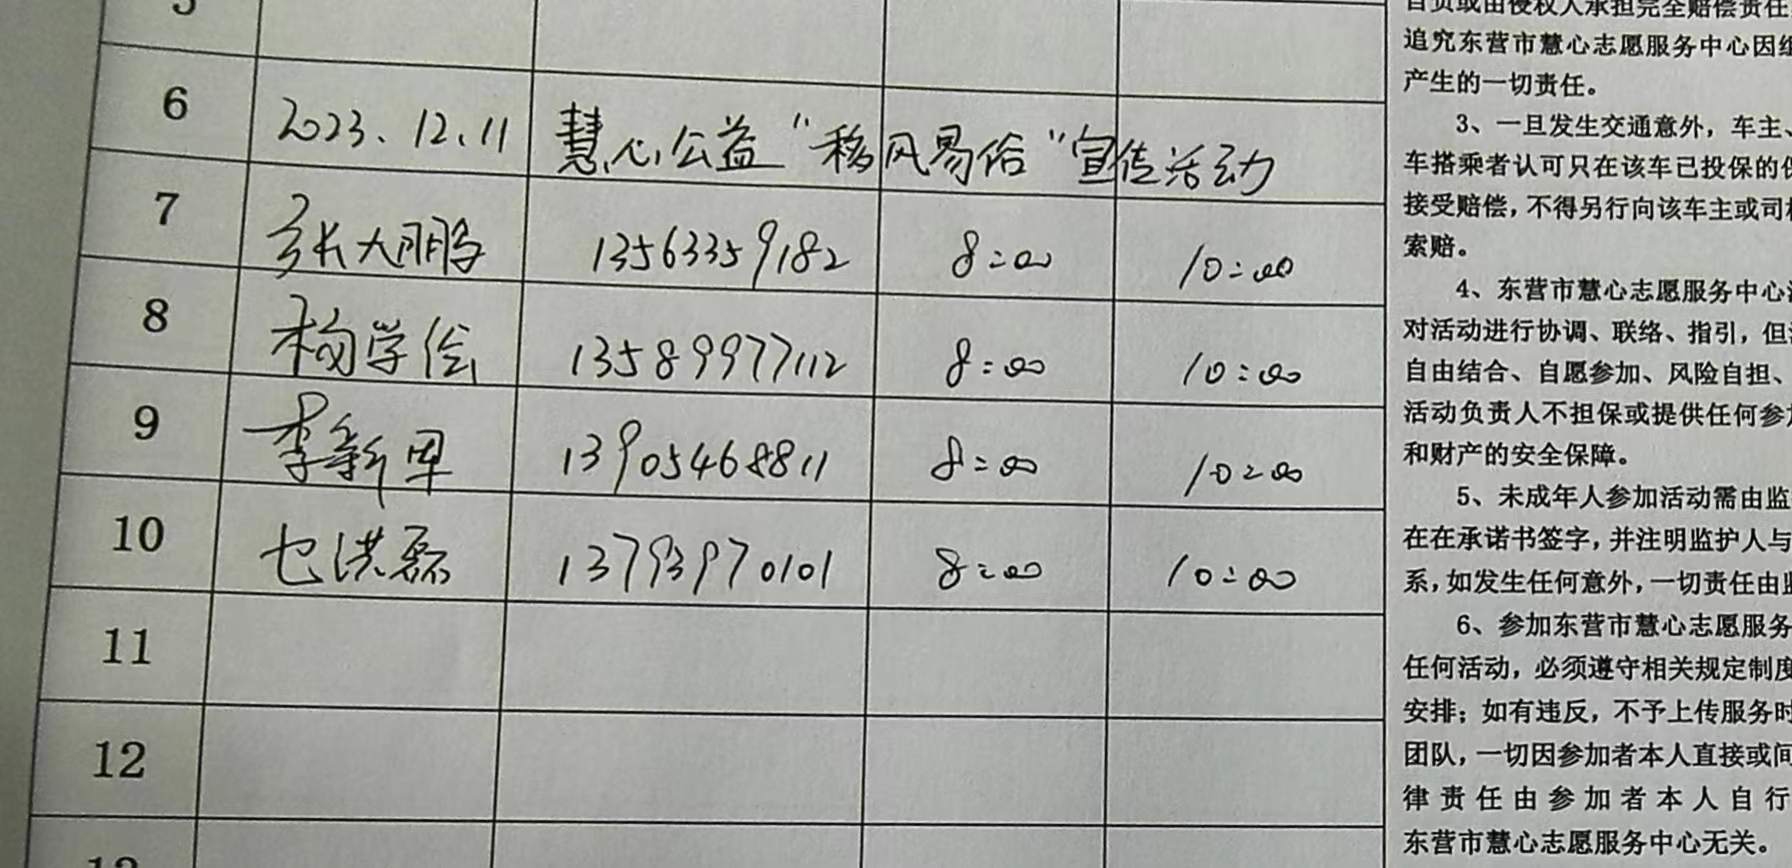 6 2023.12.11 慧心公益“移风易俗”宣传活动
7 张大鹏 13563359182 8:00 10:00
8 杨学俭 13589977112 8:00 10:00
9 李新军 13905468811 8:00 10:00
10 乜洪磊 13793970101 8:00 10:00
11
12
追究东营市慧心志愿服务中心因组
产生的一切责任。
3、一旦发生交通意外，车主、
车搭乘者认可只在该车已投保的保
接受赔偿，不得另行向该车主或司机
索赔。
4、东营市慧心志愿服务中心
对活动进行协调、联络、指引，但
自由结合、自愿参加、风险自担、
活动负责人不担保或提供任何参加
和财产的安全保障。
5、未成年人参加活动需由监
在在承诺书签字，并注明监护人与
系，如发生任何意外，一切责任由监
6、参加东营市慧心志愿服务
任何活动，必须遵守相关规定制度
安排；如有违反，不予上传服务时
团队，一切因参加者本人直接或间
律责任由参加者本人自行
东营市慧心志愿服务中心无关。